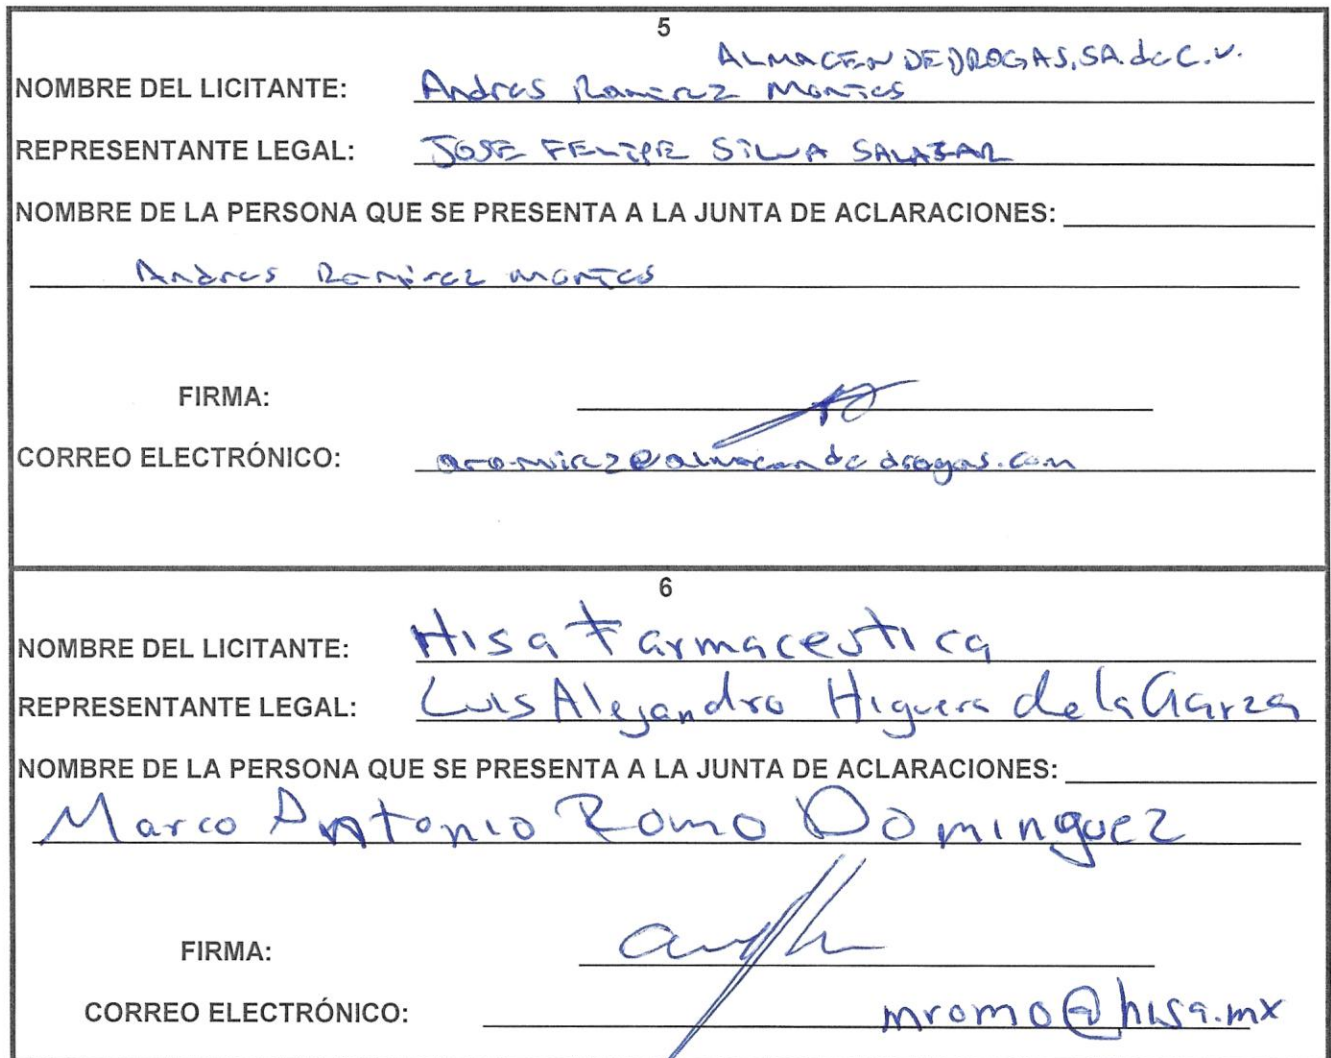 5
ALMACEN DE DROGAS, SA de C.V.
NOMBRE DEL LICITANTE: Andres Ramirez Montes
REPRESENTANTE LEGAL: JOSE FELIPE SILVA SALAZAR
NOMBRE DE LA PERSONA QUE SE PRESENTA A LA JUNTA DE ACLARACIONES:
Andres Ramirez Montes
FIRMA:
CORREO ELECTRÓNICO: aramirez@almacendedrogas.com
6
NOMBRE DEL LICITANTE: Hisa Farmaceutica
REPRESENTANTE LEGAL: Luis Alejandro Higuera de la Garza
NOMBRE DE LA PERSONA QUE SE PRESENTA A LA JUNTA DE ACLARACIONES:
Marco Antonio Romo Dominguez
FIRMA:
CORREO ELECTRÓNICO: mromo@hisa.mx